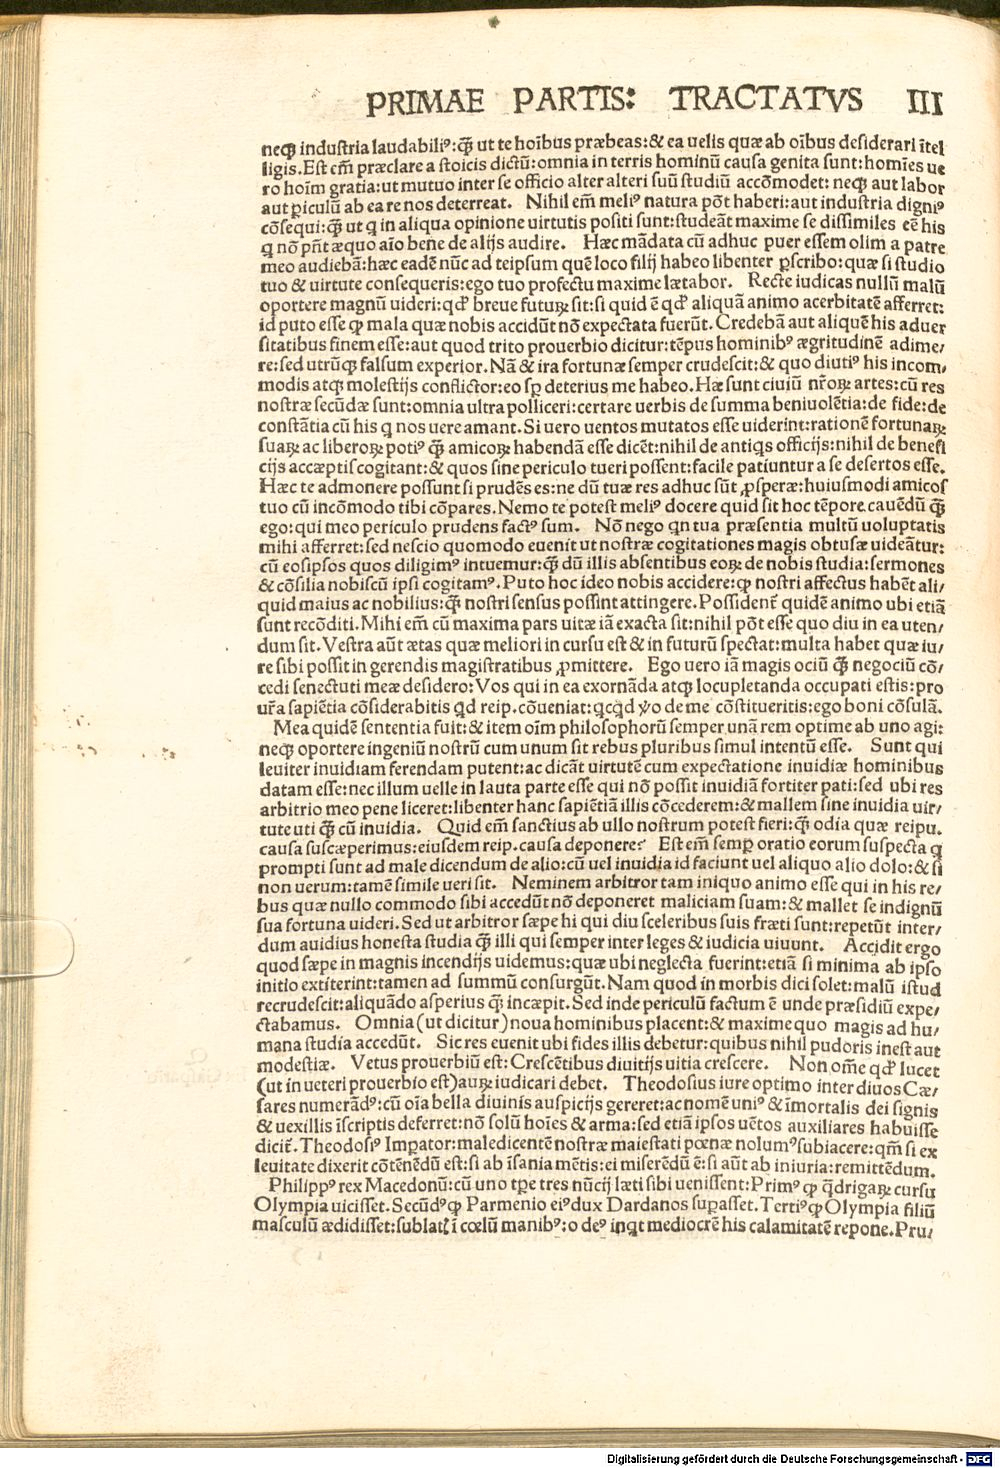 PRIMAE PARTIS: TRACTATVS III
neqꝫ industria laudabiliꝰ:ꝗ̈ ut te hoībus præbeas:& ea uelis quæ ab oībus desiderari ītel
ligis. Est em̄ præclare a stoicis dictū:omnia in terris hominū causa genita sunt:homīes ue
ro hoīm gratia:ut mutuo inter se officio alter alteri suū studiū accōmodet: neqꝫ aut labor
aut ꝑiculū ab ea re nos deterreat. Nihil em̄ meliꝰ natura pōt haberi:aut industria digniꝰ
cōsequi:ꝗ̈ ut ꝗ in aliqua opinione uirtutis positi sunt:studeāt maxime se dissimiles eē his
ꝗ nō pn̄t æquo aīo bene de alijs audire. Hæc mādata cū adhuc puer essem olim a patre
meo audiebā:hæc eadē nūc ad teipsum quē loco filij habeo libenter ꝑscribo:quæ si studio
tuo & uirtute consequeris:ego tuo profectu maxime lætabor. Recte iudicas nullū malū
oportere magnū uideri:qd̓ breue futuꝝ sit:si quid ē qd̓ aliquā animo acerbitatē afferret:
id puto esse ꝙ mala quæ nobis accidūt nō expectata fuerūt. Credebā aut aliquē his aduer
sitatibus finem esse:aut quod trito prouerbio dicitur:tēpus hominibꝰ ægritudinē adime/
re:sed utrūqꝫ falsum experior. Nā & ira fortunæ semper crudescit:& quo diutiꝰ his incom/
modis atqꝫ molestijs conflictor:eo sꝑ deterius me habeo. Hæ sunt ciuiū nr̄oꝝ artes:cū res
nostræ secūdæ sunt:omnia ultra polliceri:certare uerbis de summa beniuolētia:de fide:de
constātia cū his ꝗ nos uere amant. Si uero uentos mutatos esse uiderint:rationē fortunaꝝ
suaꝝ ac liberoꝝ potiꝰ ꝗ̈ amicoꝝ habendā esse dicēt:nihil de antiꝗs officijs:nihil de benefi
cijs accæptis cogitant:& quos sine periculo tueri possent:facile patiuntur a se desertos esse.
Hæc te admonere possunt si prudēs es:ne dū tuæ res adhuc sūt ꝓsperæ:huiusmodi amicos
tuo cū incōmodo tibi cōpares. Nemo te potest meliꝰ docere quid sit hoc tēpore cauēdū ꝗ̈
ego:qui meo periculo prudens factꝰ sum. Nō nego ꝗn tua præsentia multū uoluptatis
mihi afferret:sed nescio quomodo euenit ut nostræ cogitationes magis obtusæ uideātur:
cū eosipsos quos diligimꝰ intuemur:ꝗ̈ dū illis absentibus eoꝝ de nobis studia:sermones
& cōsilia nobiscū ipsi cogitamꝰ. Puto hoc ideo nobis accidere:ꝙ nostri affectus habēt ali/
quid maius ac nobilius:ꝗ̈ nostri sensus possint attingere. Possident̄ quidē animo ubi etiā
sunt recōditi. Mihi em̄ cū maxima pars uitæ iā exacta sit:nihil pōt esse quo diu in ea uten/
dum sit. Vestra aūt ætas quæ meliori in cursu est & in futurū spectat:multa habet quæ iu/
re sibi possit in gerendis magistratibus ꝓmittere. Ego uero iā magis ociū ꝗ̈ negociū cō/
cedi senectuti meæ desidero: Vos qui in ea exornāda atqꝫ locupletanda occupati estis:pro
ur̄a sapiētia cōsiderabitis ꝗd reip. cōueniat:ꝗcꝗd ꝟo de me cōstitueritis:ego boni cōsulā.
Mea quidē sententia fuit:& item oīm philosophorū semper unā rem optime ab uno agi:
neqꝫ oportere ingeniū nostrū cum unum sit rebus pluribus simul intentū esse. Sunt qui
leuiter inuidiam ferendam putent:ac dicāt uirtutē cum expectatione inuidiæ hominibus
datam esse:nec illum uelle in lauta parte esse qui nō possit inuidiā fortiter pati:sed ubi res
arbitrio meo pene liceret:libenter hanc sapiētiā illis cōcederem:& mallem sine inuidia uir/
tute uti ꝗ̈ cū inuidia. Quid em̄ sanctius ab ullo nostrum potest fieri:ꝗ̈ odia quæ reipu.
causa suscæperimus:eiusdem reip. causa deponere? Est em̄ semꝑ oratio eorum suspecta ꝗ
prompti sunt ad male dicendum de alio:cū uel inuidia id faciunt uel aliquo alio dolo:& si
non uerum:tamē simile ueri sit. Neminem arbitror tam iniquo animo esse qui in his re/
bus quæ nullo commodo sibi accedūt nō deponeret maliciam suam:& mallet se indignū
sua fortuna uideri. Sed ut arbitror sæpe hi qui diu sceleribus suis fræti sunt:repetūt inter/
dum auidius honesta studia ꝗ̈ illi qui semper inter leges & iudicia uiuunt. Accidit ergo
quod sæpe in magnis incendijs uidemus:quæ ubi neglecta fuerint:etiā si minima ab ipso
initio extiterint:tamen ad summū consurgūt. Nam quod in morbis dici solet:malū istud
recrudescit:aliquādo asperius ꝗ̈ incæpit. Sed inde periculū factum ē unde præsidiū expe/
ctabamus. Omnia (ut dicitur) noua hominibus placent:& maxime quo magis ad hu/
mana studia accedūt. Sic res euenit ubi fides illis debetur:quibus nihil pudoris inest aut
modestiæ. Vetus prouerbiū est: Crescētibus diuitijs uitia crescere. Non om̄e qd̓ lucet
(ut in ueteri prouerbio est) auꝝ iudicari debet. Theodosius iure optimo inter diuos Cæ/
sares numerādꝰ:cū oīa bella diuinis auspicijs gereret:ac nomē uniꝰ & īmortalis dei signis
& uexillis īscriptis deferret:nō solū hoīes & arma:sed etiā ipsos uētos auxiliares habuisse
dicit̄. Theodosiꝰ Imꝑator:maledicentē nostræ maiestati pœnæ nolumꝰ subiacere:qm̄ si ex
leuitate dixerit cōtēnēdū est:si ab īsania mētis:ei miserēdū ē:si aūt ab iniuria:remittēdum.
Philippꝰ rex Macedonū:cū uno tꝑe tres nūcij læti sibi uenissent:Primꝰ ꝙ ꝗdrigaꝝ cursu
Olympia uicisset. Secūdꝰ ꝙ Parmenio eiꝰ dux Dardanos suꝑasset. Tertiꝰ ꝙ Olympia filiū
masculū ædidisset:sublatꝭ ī cœlū manibꝰ:o deꝰ inꝗt mediocrē his calamitatē repone. Pru/
Digitalisierung gefördert durch die Deutsche Forschungsgemeinschaft - DFG